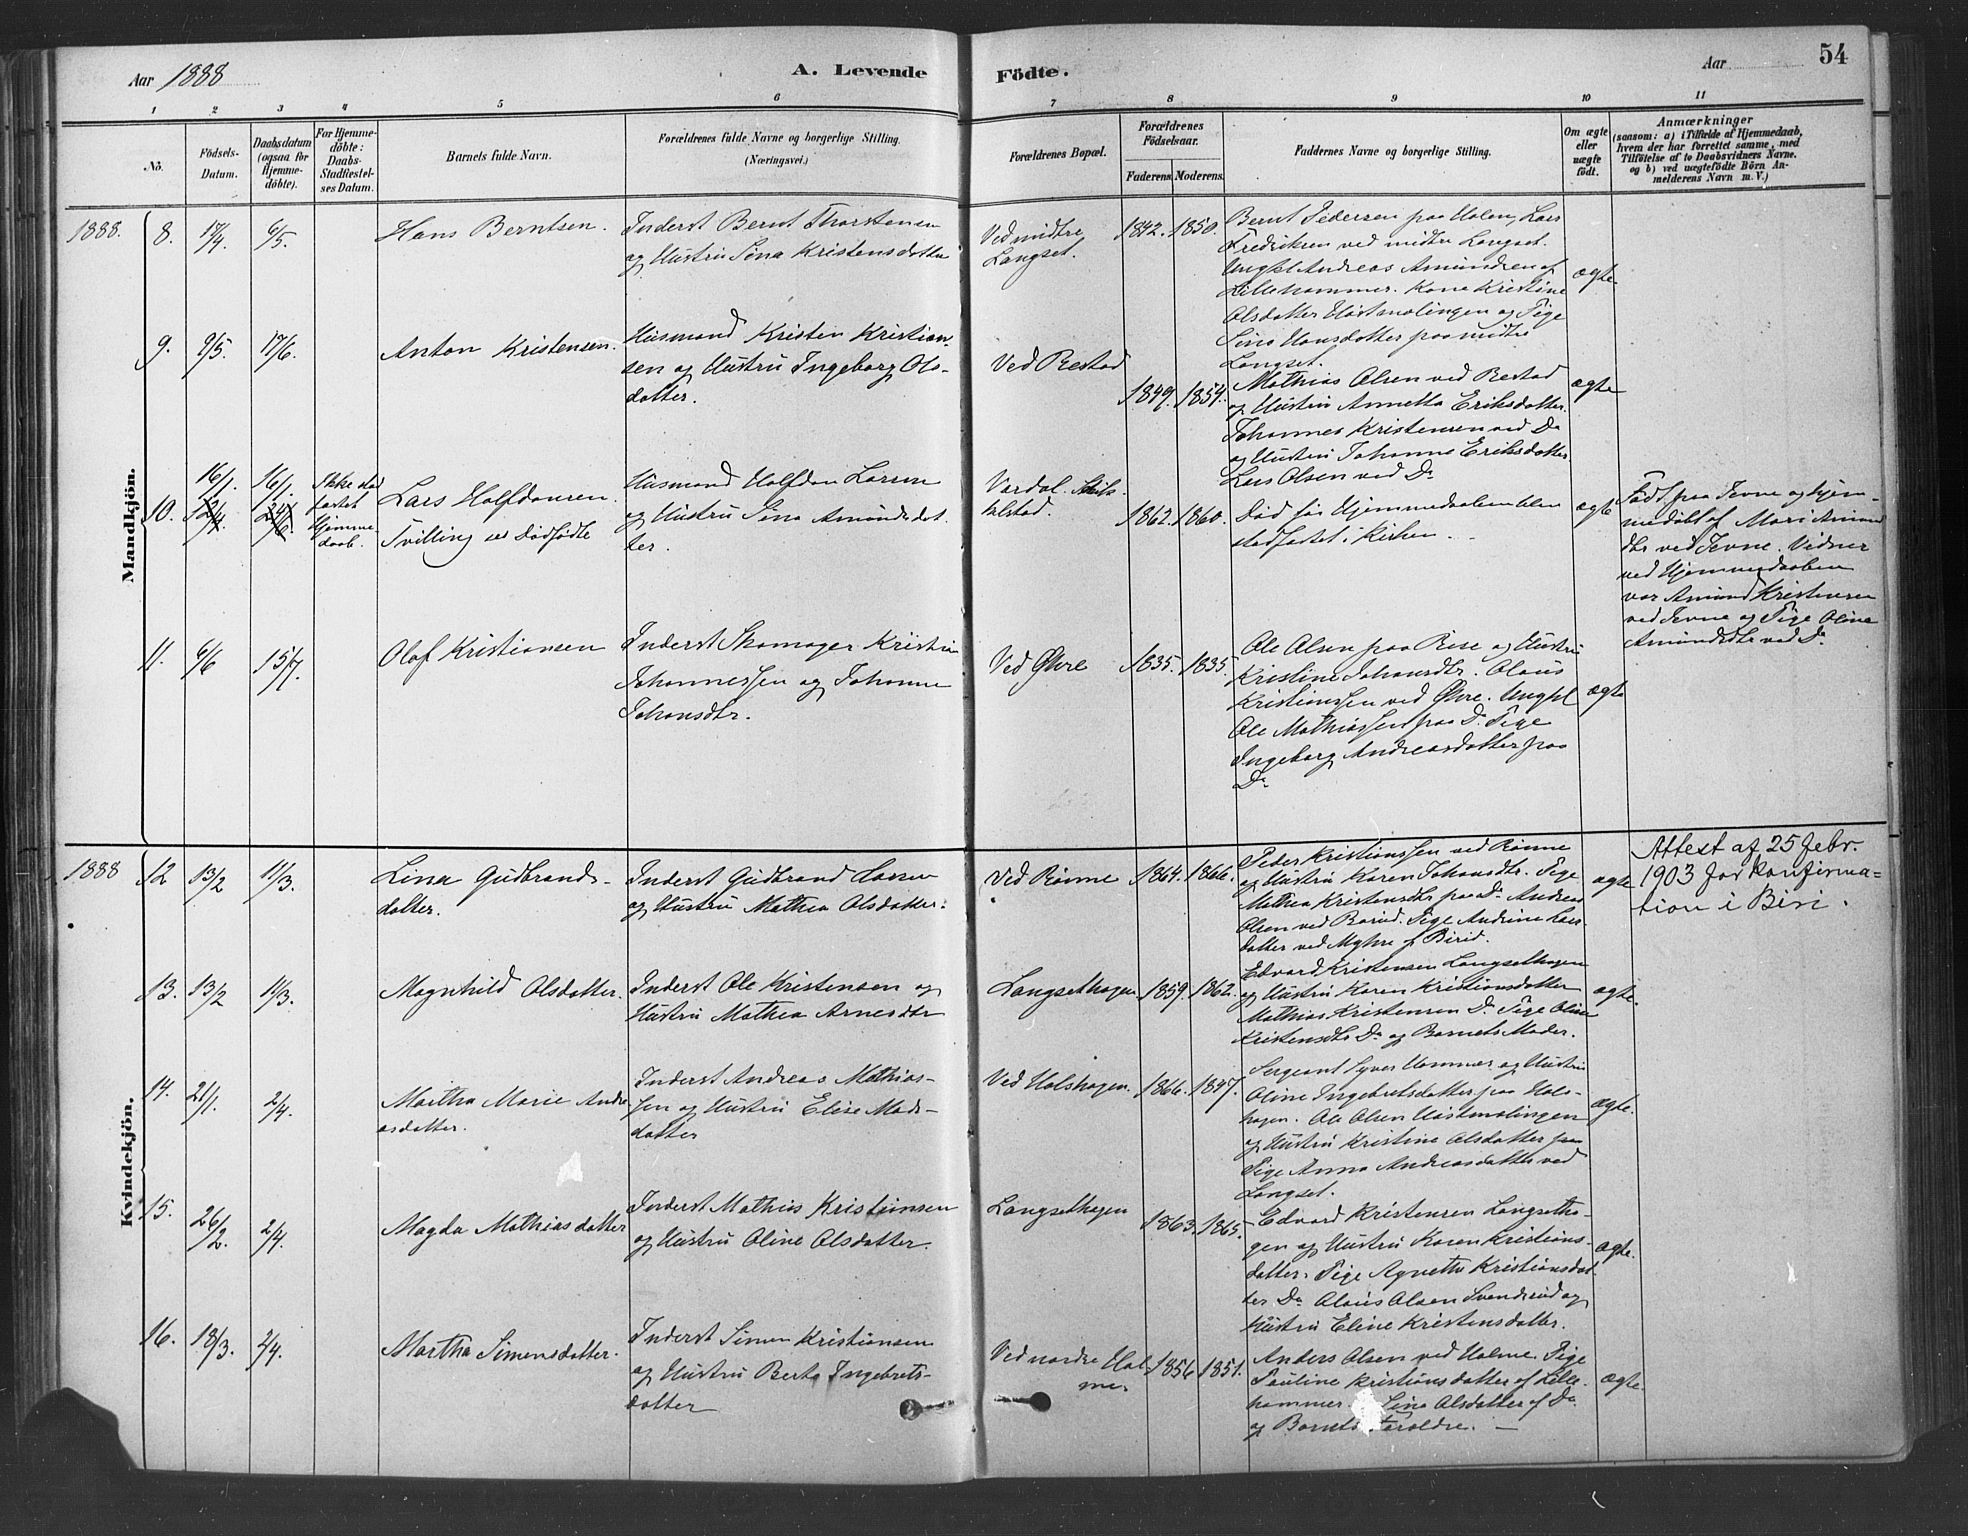 Aar 1888
A. Levende
Födte.
Aar
54
1
2
3
4
5
6
7
8
9
10
11
No.
Födsels-
Datum.
Daabsdatum
(ogsaa for
Hjemme-
döbte).
For Hjemme-
döbte:
Daabs-
Stadfæstel-
ses Datum.
Barnets fulde Navn.
Forældrenes fulde Navne og borgerlige Stilling.
(Næringsvei.)
Forældrenes Bopæl.
Forældrenes
Födselsaar.
Faderens.
Moderens.
Faddernes Navne og borgerlige Stilling.
Om ægte
eller
uægte
födt.
Anmærkninger
(saasom: a) i Tilfælde af Hjemmedaab,
hvem der har forrettet samme, med
Tilföielse af to Daabsvidners Navne.
og b) ved uægtefödte Börn An-
melderens Navn m. V.)
Mandkjön.
1888.
8.
17/4.
6/5.
Hans Berntsen.
Inderst Bernt Thorstensen
og Hustru Sina Kristensdatter
Ved midtre
Langset.
1842.
1850.
Bernt Pedersen paa Holen, Lars
Fredriksen ved midtre Langset.
Ungkl Andreas Amundsen af
Lillehammer. Kone Kristine
Olsdatter Høstmælingen og Pige
Sina Hansdatter paa midtre
Langset.
ægte.
9.
9/5.
17/6.
Anton Kristensen.
Husmand Kristen Kristian-
sen og Hustru Ingeborg Ols-
datter.
Ved Bestad
1849.
1854.
Mathias Olsen ved Bestad
og Hustru Annetta Eriksdatter.
Johannes Kristensen ved Do
og Hustru Johanne Eriksdatter
Lars Olsen ved Do
ægte
10.
16/1.
16/1.
Ikke stad
fæstet
Hjemme
daab.
Lars Halfdansen.
Tvilling ved dødfødte
Husmand Halfdan Larsen
og Hustru Sina Amundsdat
ter.
Vardal.
1862.
1860.
Død før Hjemmedaaben blev
stadfæstet i Kirken.
ægte
Født paa Jevne og hjem-
medøbt af Mari Amund
dtr ved Jevne. Vidner
ved Hjemmedaaben
var Amund Kristensen
ved Jevne og Pige Oline
Amundsdtr ved Do
11.
6/6
15/7.
Olaf Kristiansen
Inderst Skomager Kristian
Johannessen og Johanne
Johansdtr.
Ved Øvre
1835.
1835.
Ole Olsen paa Rise og Hustru
Kristine Johansdtr. Olaus
Kristianssen ved Øvre. Ungkl
Ole Mathiassen paa Do. Pige
Ingeborg Andreasdatter paa
Do
ægte
Kvindekjön.
1888
12
13/2
11/3.
Lina Gudbrands-
datter.
Inderst Gudbrand Larsen
og Hustru Mathea Olsdatter.
Ved Rønne
1864.
1866.
Peder Kristianssen ved Rønne
og Hustru Karen Johansdtr. Pige
Mathea Kristensdtr paa Do. Andreas
Olsen ved Pige Andrine Lars
datter ved Myhre af Birid.
ægte
Attest af 25 febr.
1903 for konfirma-
tion i Biri.
13.
13/2
11/3.
Magnhild Olsdatter.
Inderst Ole Kristensen og
Hustru Mathea Arnesdtr
Langsethagen
1859.
1862.
Edvard Kristensen Langsethagen
og Hustru Karen Kristiansdatter
Mathias Kristensen Do. Pige Oline
Kristensdtr Do og Barnets Moder.
ægte.
14.
21/1.
2/4.
Martha Marie Andre
asdatter.
Inderst Andreas Mathias-
sen og Hustru Elise Mads-
datter
Ved Holshagen.
1866.
1847.
Sergeant Syver Hammer og Hustru
Oline Ingebretsdatter paa Hols-
hagen. Ole Olsen Høstmælingen
og Hustru Kristine Olsdatter paa
Pige Anna Andreasdatter ved
Langset.
ægte.
15.
26/2.
2/4.
Magda Mathiasdatter
Inderst Mathias Kristiansen
og Hustru Oline Olsdatter.
Langsethagen
1863.
1865.
Edvard Kristensen Langsetha-
gen og Hustru Karen Kristians-
datter. Pige Agnethe Kristiansdat
ter Do Olaus Olsen Svendsrud og
Hustru Eline Kristensdatter.
ægte.
16.
18/3.
2/4.
Martha Simensdatter.
Inderst Simen Kristiansen
og Hustru Berte Ingebrets-
datter
Ved nordre Hol
me.
1856
1851.
Anders Olsen ved Holme. Pige
Pauline Kristiansdatter af Lille-
hammer. Sina Olsdatter af Do
og Barnets Forældre.
ægte.